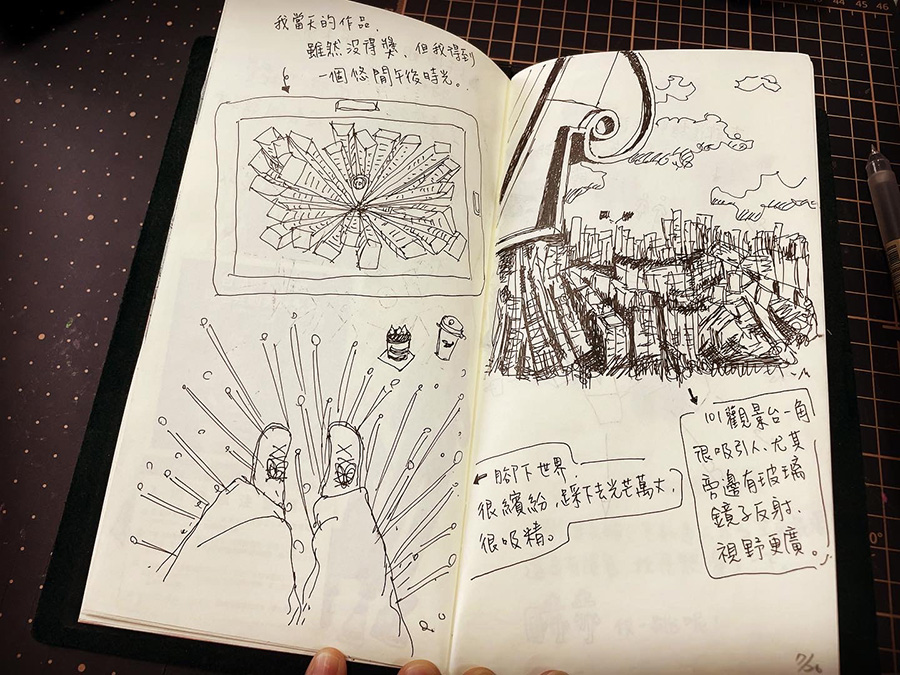 我當天的作品
雖然沒得獎、但我得到
一個悠閒午後時光。
腳下世界
很繽紛,踩下去光芒萬丈,
很吸精。
101觀景台一角
很吸引人、尤其
旁邊有玻璃
鏡子反射、
視野更廣。
44 45 46
0°